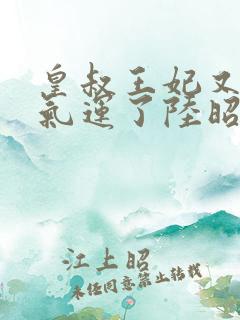 皇叔王妃又
氣運了陸昭
江上昭
未经同意禁止转载